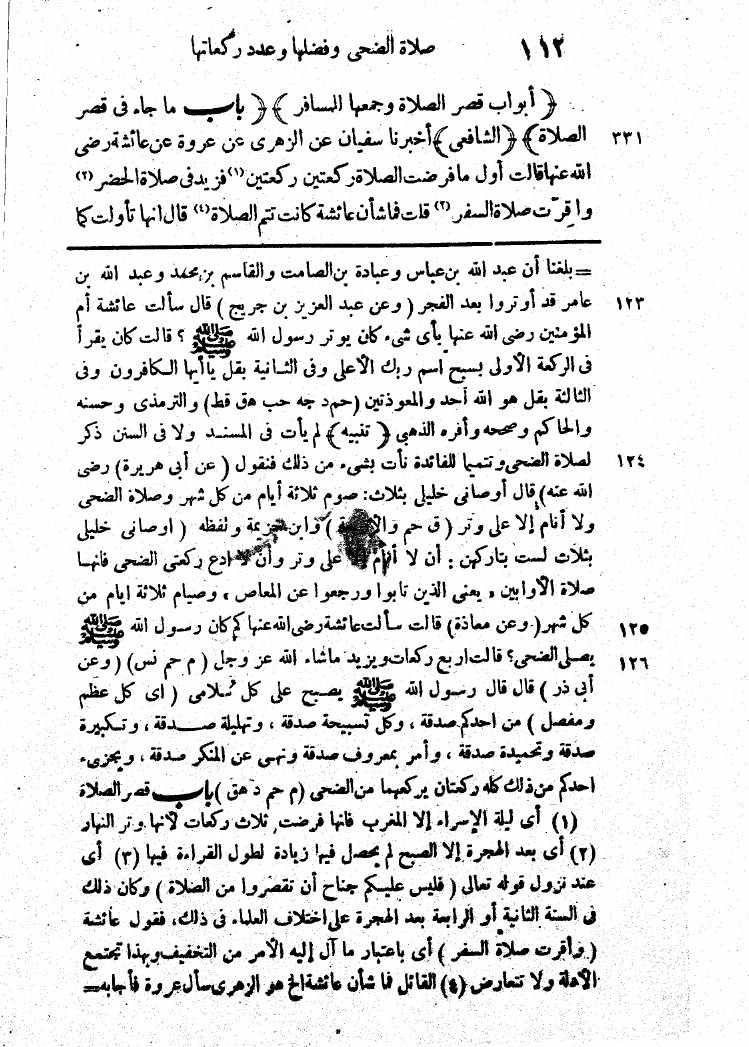 ١١٢ صلاة الضحى وفضلها وعدد ركعاتها
﴿ أبواب قصر الصلاة وجمعها للمسافر ﴾ ﴿ باب ما جاء فى قصر
٣٣١ الصلاة ﴾ ﴿ الشافعى ﴾ أخبرنا سفيان عن الزهرى عن عروة عن عائشة رضى
الله عنها قالت أول ما فرضت الصلاة ركعتين ركعتين (١) فزيد فى صلاة الحضر (٢)
واقرّت صلاة السفر (٣) قلت فما شأن عائشة كانت تتم الصلاة (٤) قال انها تأولت كما
= بلغنا أن عبد الله بن عباس وعبادة بن الصامت والقاسم بن محمد وعبد الله بن
١٢٣ عامر قد أوتروا بعد الفجر ( وعن عبد العزيز بن جريج ) قال سألت عائشة أم
المؤمنين رضى الله عنها بأى شىء كان يوتر رسول الله ﷺ ؟ قالت كان يقرأ
فى الركعة الأولى بسبح اسم ربك الأعلى وفى الثانية بقل يا أيها الكافرون وفى
الثالثة بقل هو الله أحد والمعوذتين (حم د جه حب هق قط) والترمذى وحسنه
والحاكم وصححه وأقره الذهبى ﴿ تنبيه ﴾ لم يأت فى المسند ولا فى السنن ذكر
١٢٤ لصلاة الضحى وتتميما للفائدة نأت بشىء من ذلك فنقول ( عن أبى هريرة ) رضى
الله عنه) قال أوصانى خليلى بثلاث: صوم ثلاثة أيام من كل شهر وصلاة الضحى
ولا أنام إلا على وتر ( ق حم ) وابن خزيمة ولفظه ( اوصانى خليلى
بثلاث لست بتاركهن : أن لا أنام إلا على وتر وأن لا ادع ركعتى الضحى فانها
صلاة الأوابين ، يعنى الذين تابوا ورجعوا عن المعاص ، وصيام ثلاثة ايام من
١٢٥ كل شهر( وعن معاذة) قالت سألت عائشة رضى الله عنها كم كان رسول الله ﷺ
١٢٦ يصلى الضحى؟ قالت اربع ركعات ويزيد ماشاء الله عز وجل ( م حم نس) (وعن
أبى ذر ) قال قال رسول الله ﷺ يصبح على كل سُلامى ( اى كل عظم
ومفصل ) من احدكم صدقة ، وكل تسبيحة صدقة ، وتهليلة صدقة ، وتكبيرة
صدقة وتحميدة صدقة ، وأمر بمعروف صدقة ونهى عن المنكر صدقة ، ويجزىء
احدكم من ذلك كله ركعتان يركعهما من الضحى (م حم د هق ) باب قصر الصلاة
(١) أى ليلة الإسراء إلا المغرب فانها فرضت ثلاث ركعات لأنها وتر النهار
(٢) أى بعد الهجرة إلا الصبح لم يحصل فيها زيادة لطول القراءة فيها (٣) أى
عند نزول قوله تعالى ( فليس عليكم جناح أن تقصروا من الصلاة ) وكان ذلك
فى السنة الثانية أو الرابعة بعد الهجرة على اختلاف العلماء فى ذلك، فقول عائشة
( وأقرت صلاة السفر ) أى باعتبار ما آل إليه الأمر من التخفيف وبهذا تجتمع
الأدلة ولا تتعارض (٤) القائل فما شأن عائشة الخ هو الزهرى سأل عروة فأجابه=